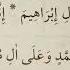 لِ إِبْرَاهِيمَ * إِنَّ
مَّدٍ وَعَلَى آلِ مُ